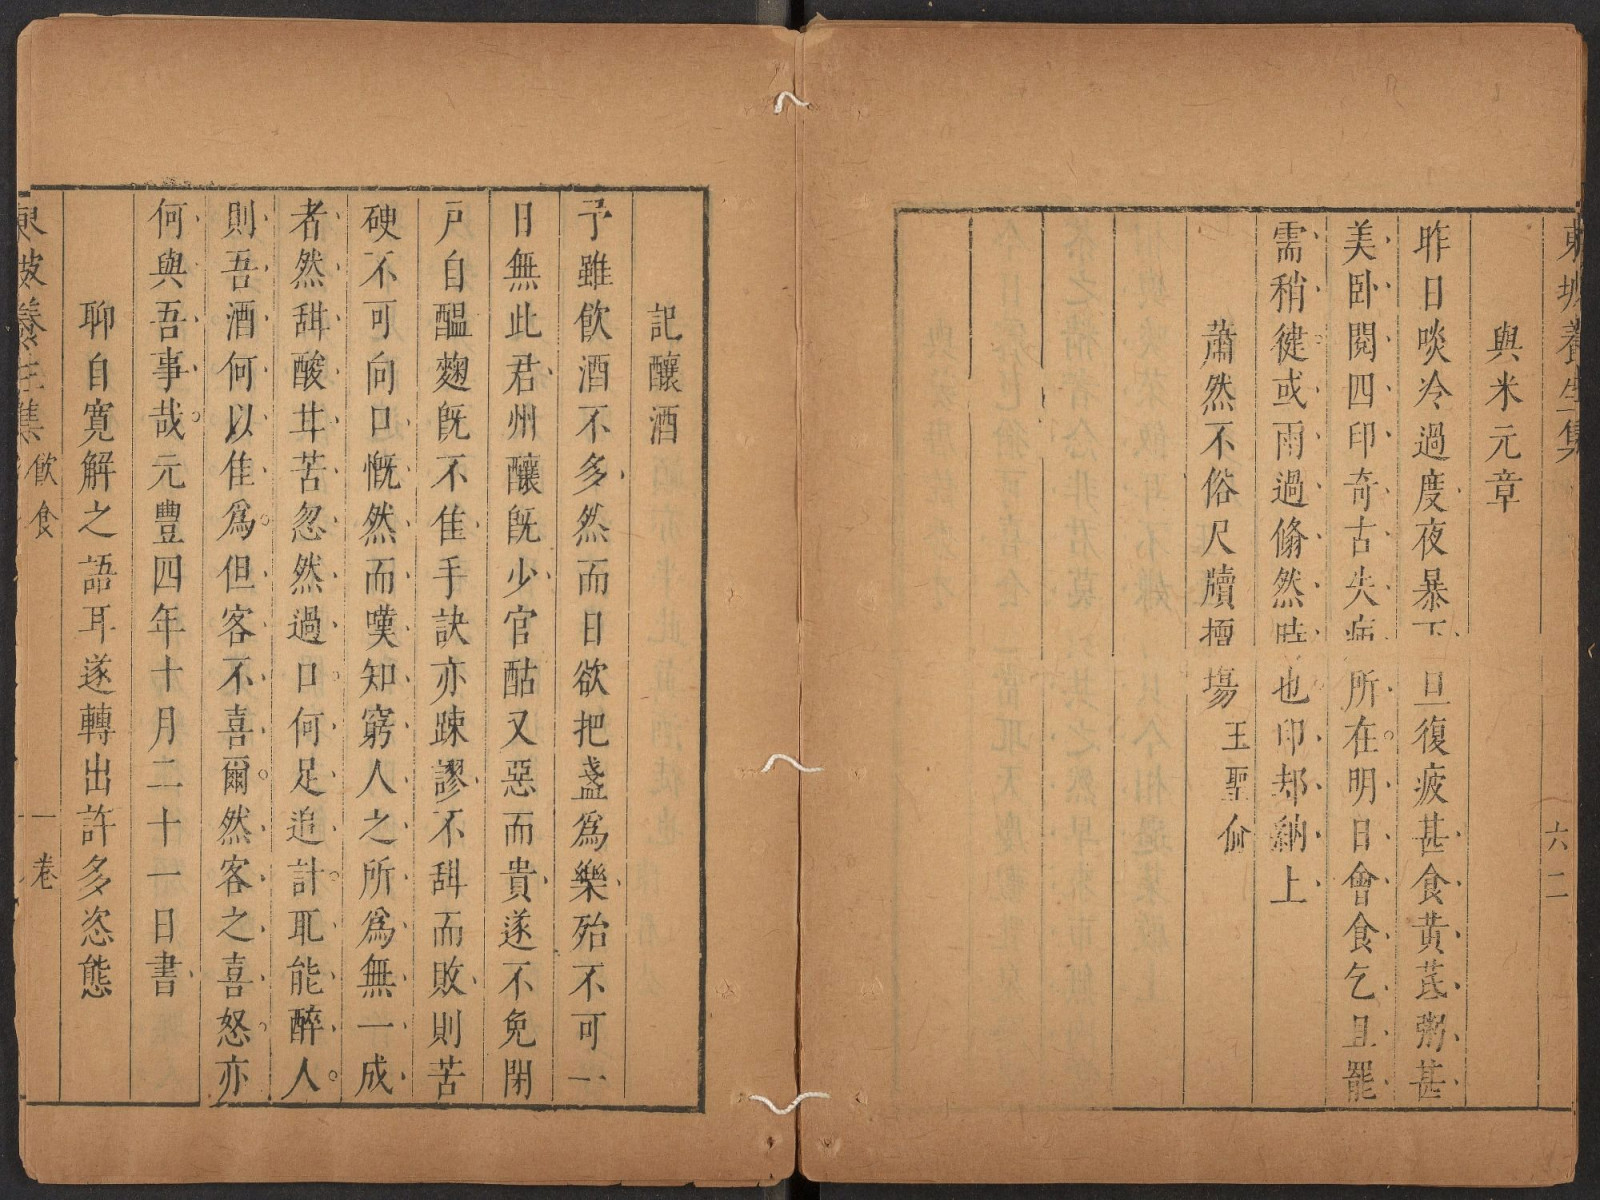 東坡養生集
六二
與米元章
昨日啖冷過度夜暴下旦復疲甚食黃芪粥甚
美卧閱四印奇古失病所在明日會食乞且罷
需稍健或雨過翛然時也印却納上
蕭然不俗尺牘擅場王聖俞
記釀酒
予雖飲酒不多然而日欲把盞爲樂殆不可一
日無此君州釀旣少官酤又惡而貴遂不免閉
戸自醞麴旣不佳手訣亦踈謬不甜而敗則苦
硬不可向口慨然而嘆知窮人之所爲無一成
者然甜酸甘苦忽然過口何足追計耴能醉人
則吾酒何以佳爲但客不喜爾然客之喜怒亦
何與吾事哉元豐四年十月二十一日書
聊自寛解之語耳遂轉出許多恣態
東坡養生集
飲食
一卷